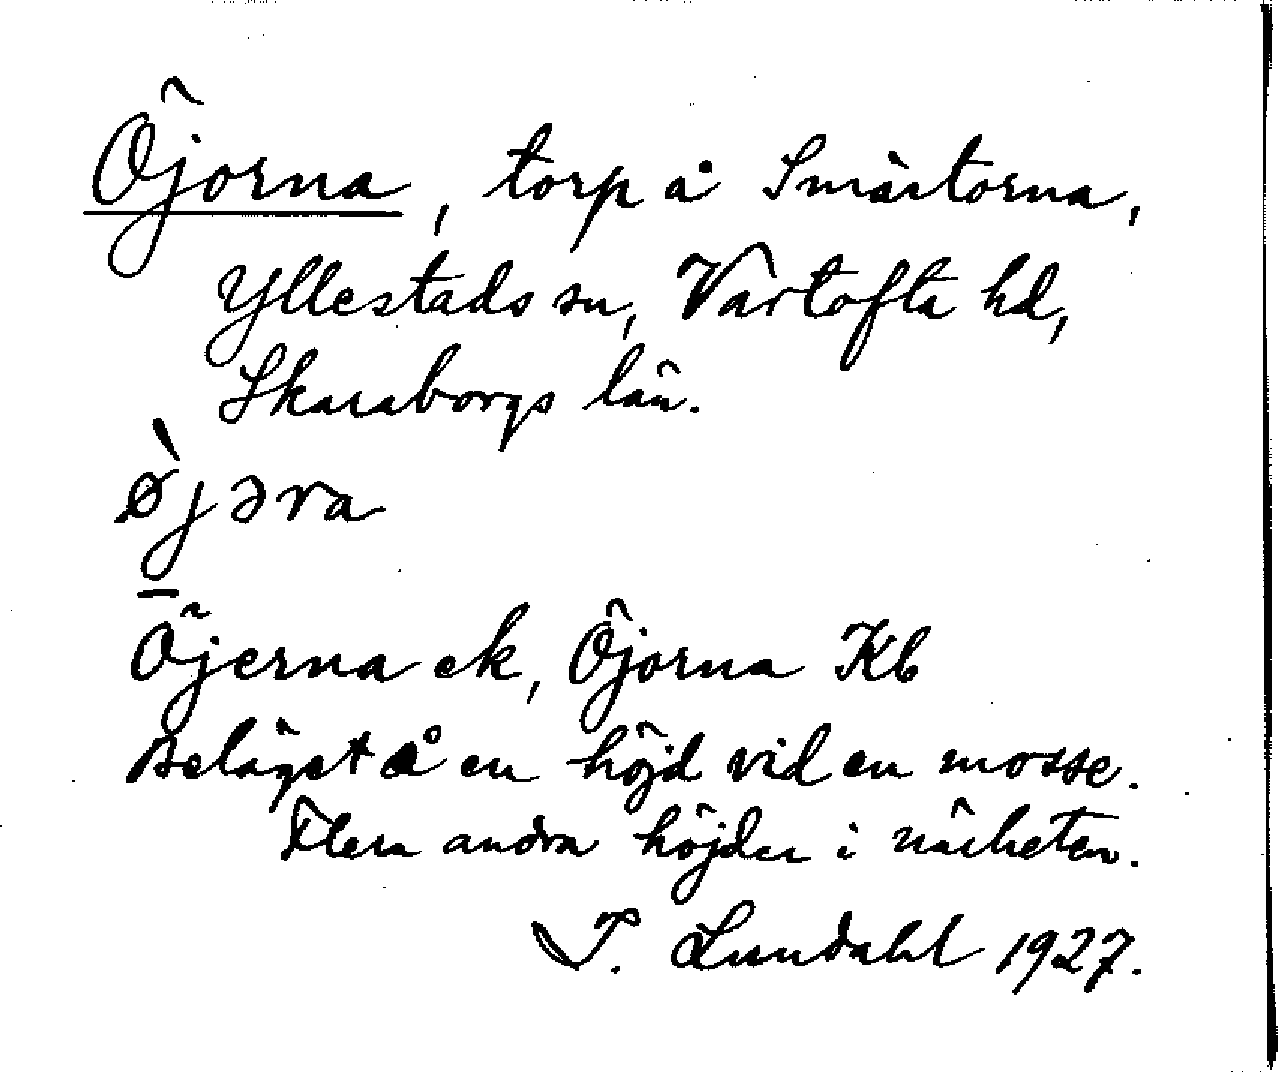 Öjorna, torp å Smårtorna,
Yllestads sn, Vartofta hd,
Skaraborgs län.
ø̀jəra
Öjerna ek, Öjorna Kb
Beläget å en höjd vid en mosse.
Flera andra höjder i närheten.
P. Lundahl 1927.